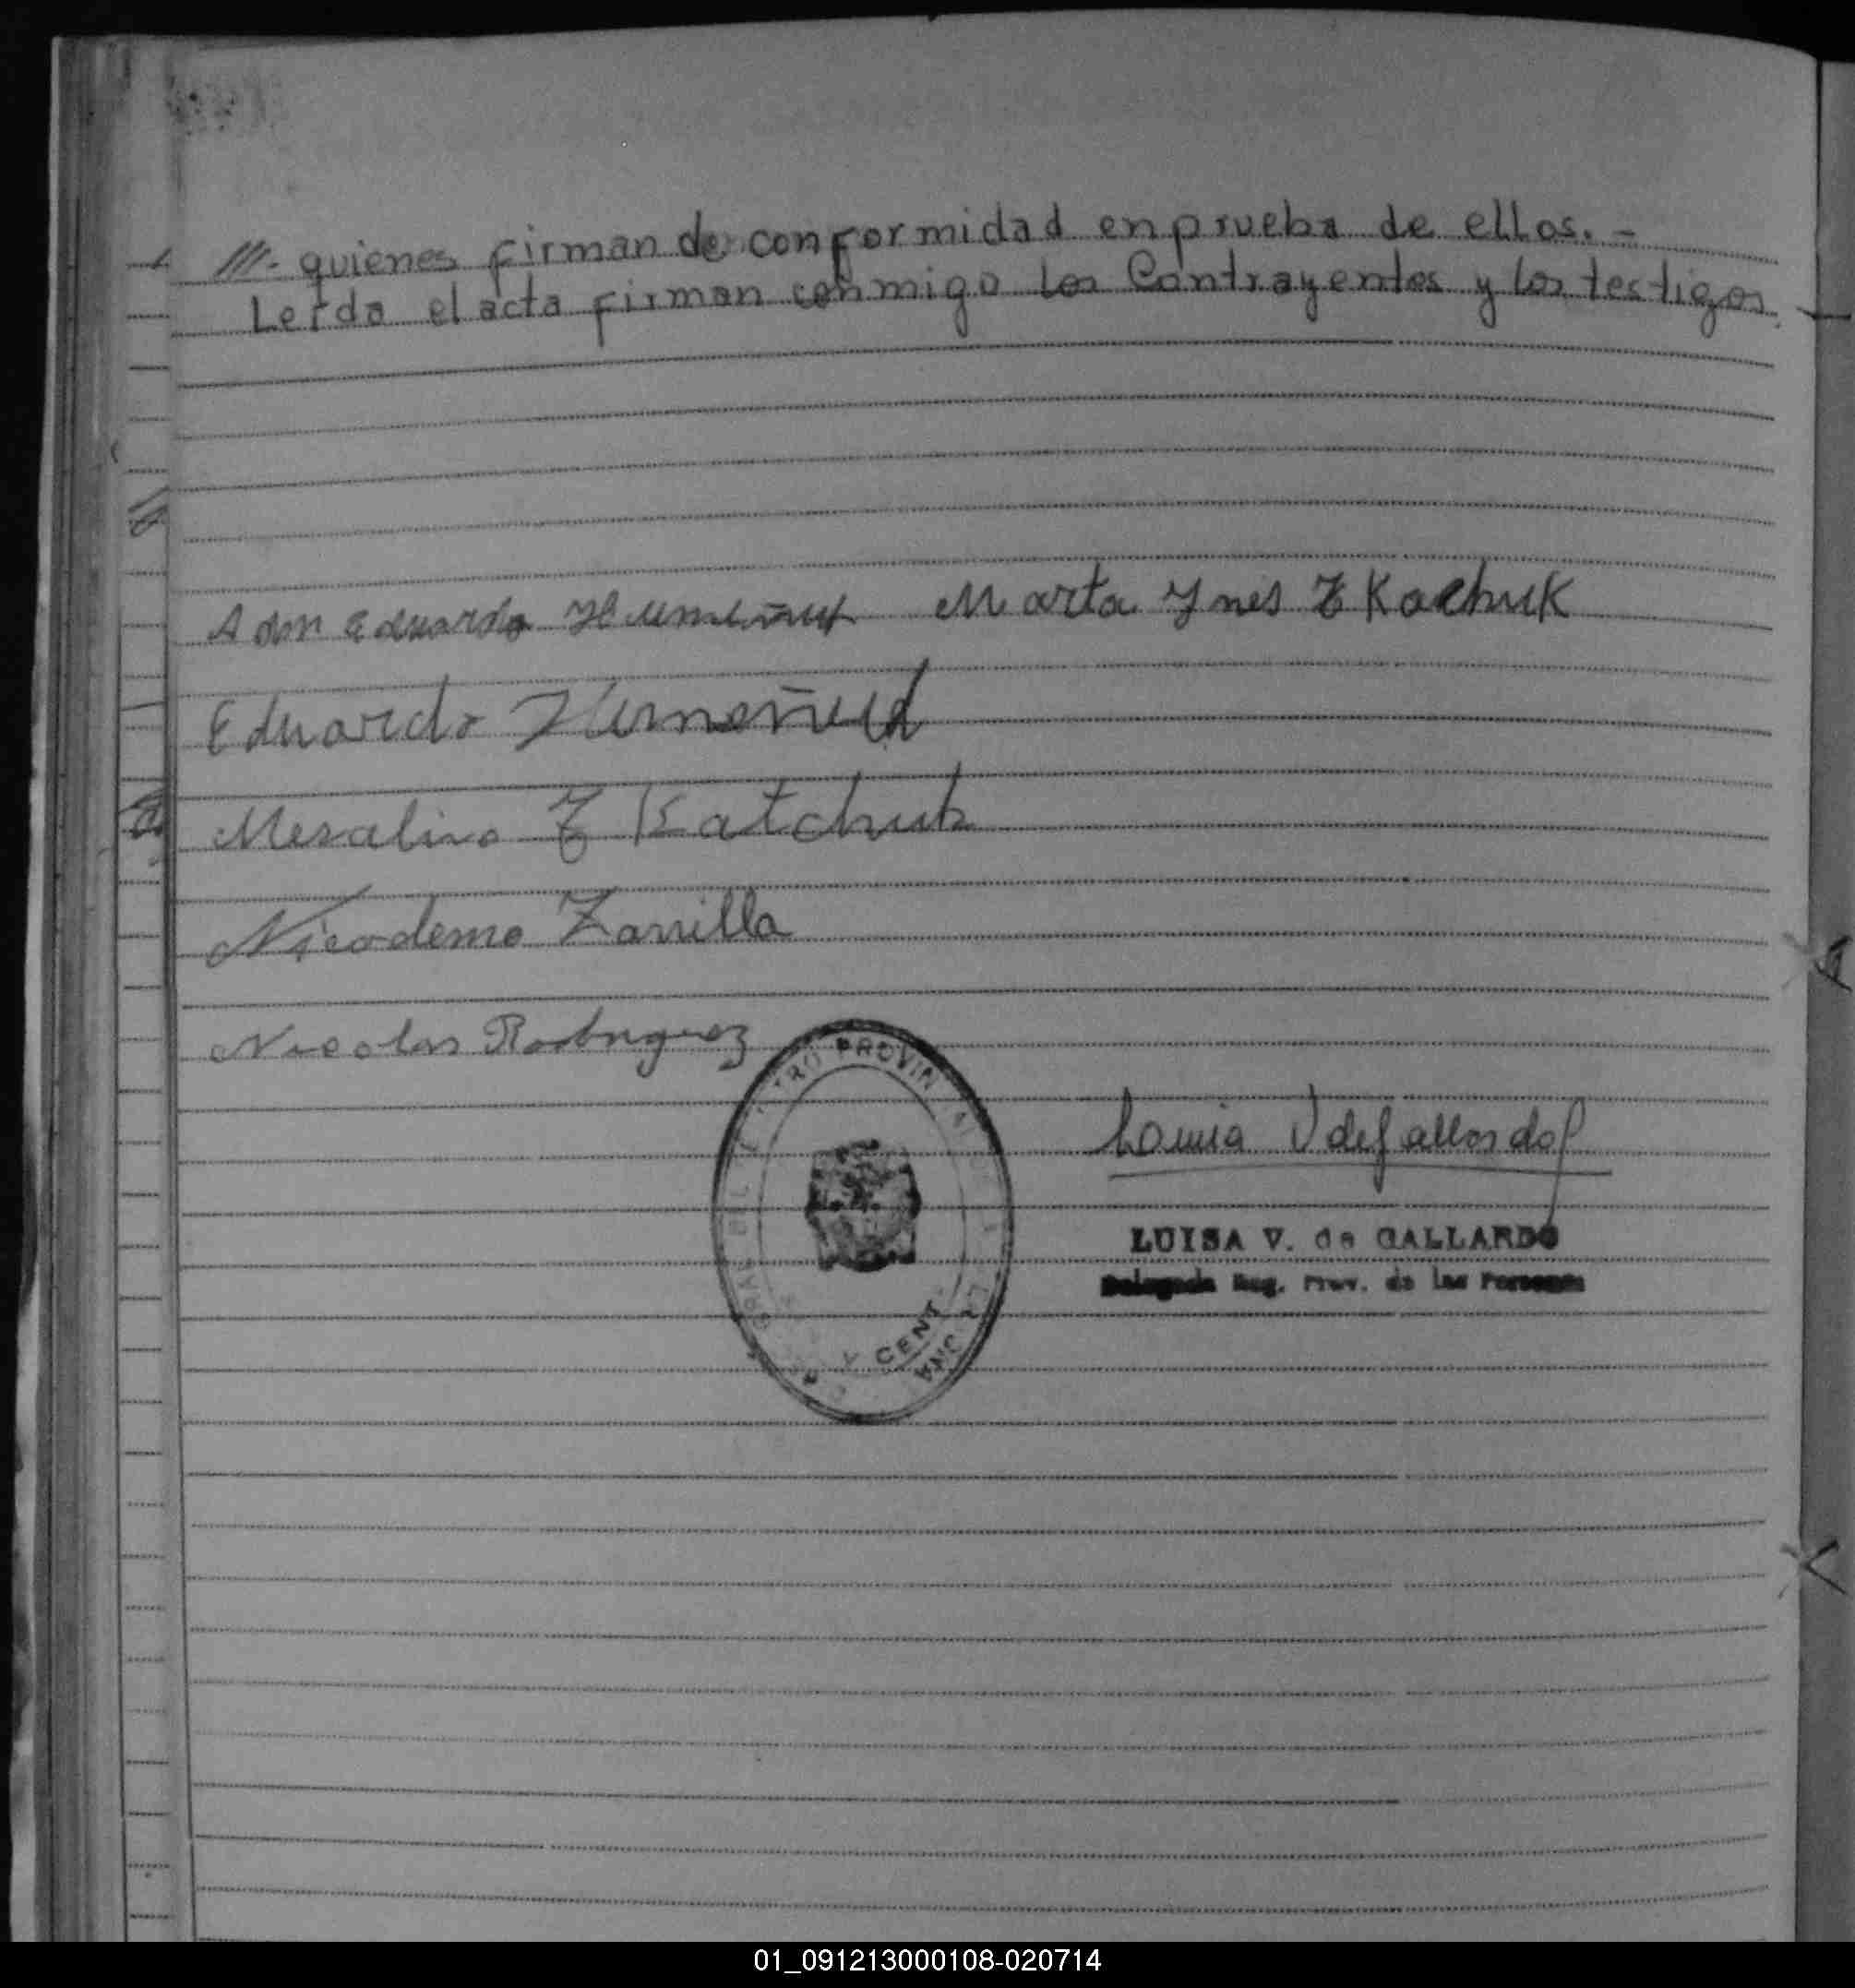 ///- quienes firman de conformidad en prueba de ellos. -
Leída el acta firman conmigo los Contrayentes y los testigos.
Adan Eduardo Marta Ynes TKachuk
Eduardo
Mesalino TKatchuk
Nicodemo Zarrilla
Nicolas Rodriguez
PROVIN
CENT
Luisa V de Gallardo
LUISA V. de GALLARDO
Delegada Reg. Prov. de las Personas
01_091213000108-020714